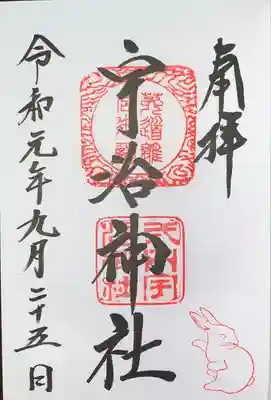 奉拝
宇治神社
令和元年九月二十五日